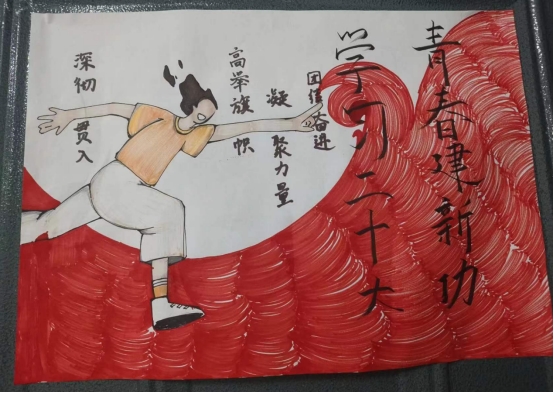 青春建新功
学习二十大
团结奋进
凝聚力量
高举旗帜
深彻贯入